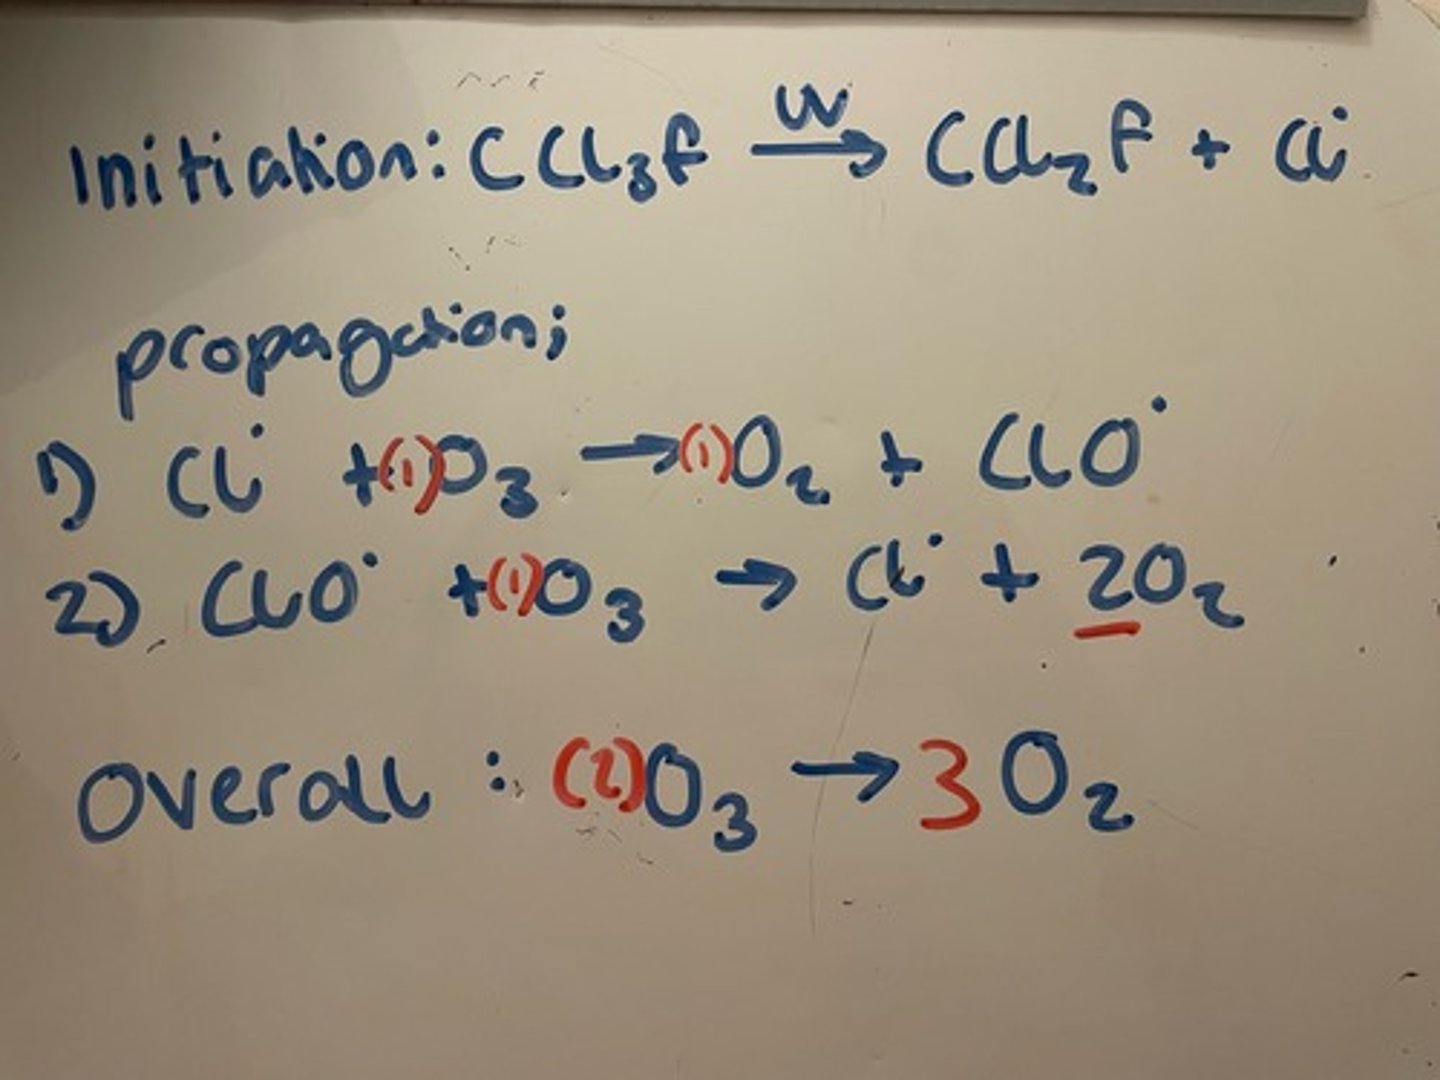 Initiation: CCl₃F UV→ CCl₂F + Cl•
propagation;
1) Cl• +(1)O₃ →(1)O₂ + ClO•
2) ClO• +(1)O₃ → Cl• + 2O₂
Overall : (2)O₃ → 3O₂